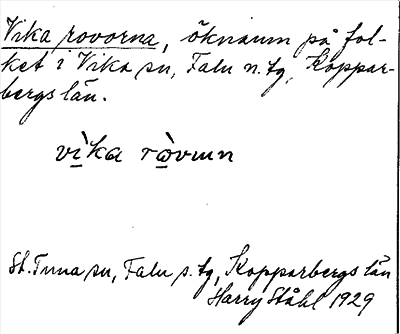 Vika rovorna, öknamn på fol-
ket i Vika sn, Falu n. tg, Koppar-
bergs län.
vìka ròvuṇ
St. Tuna sn, Falu s. tg, Kopparbergs län
Harry Ståhl 1929